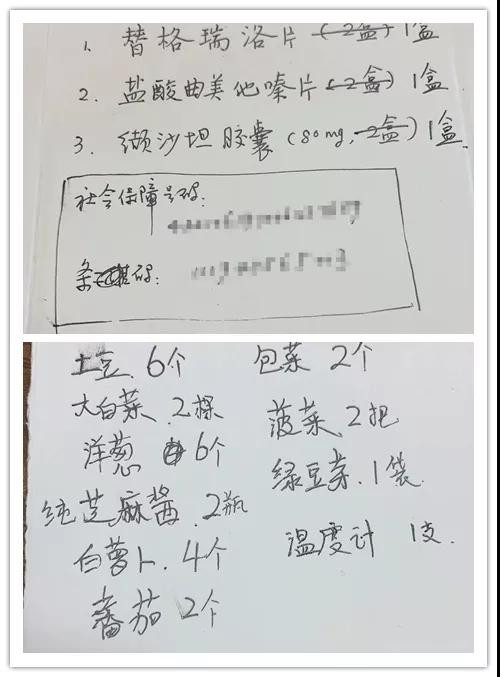 1. 替格瑞洛片 (2盒) 1盒
2. 盐酸曲美他嗪片 (2盒) 1盒
3. 缬沙坦胶囊 (80mg, 2盒) 1盒.
社会保障号码:
条码:
土豆. 6个
大白菜. 2棵
洋葱 6个
纯芝麻酱. 2瓶
白萝卜. 4个
蕃茄 2个
包菜 2个
菠菜. 2把
绿豆芽. 1袋
温度计 1支.